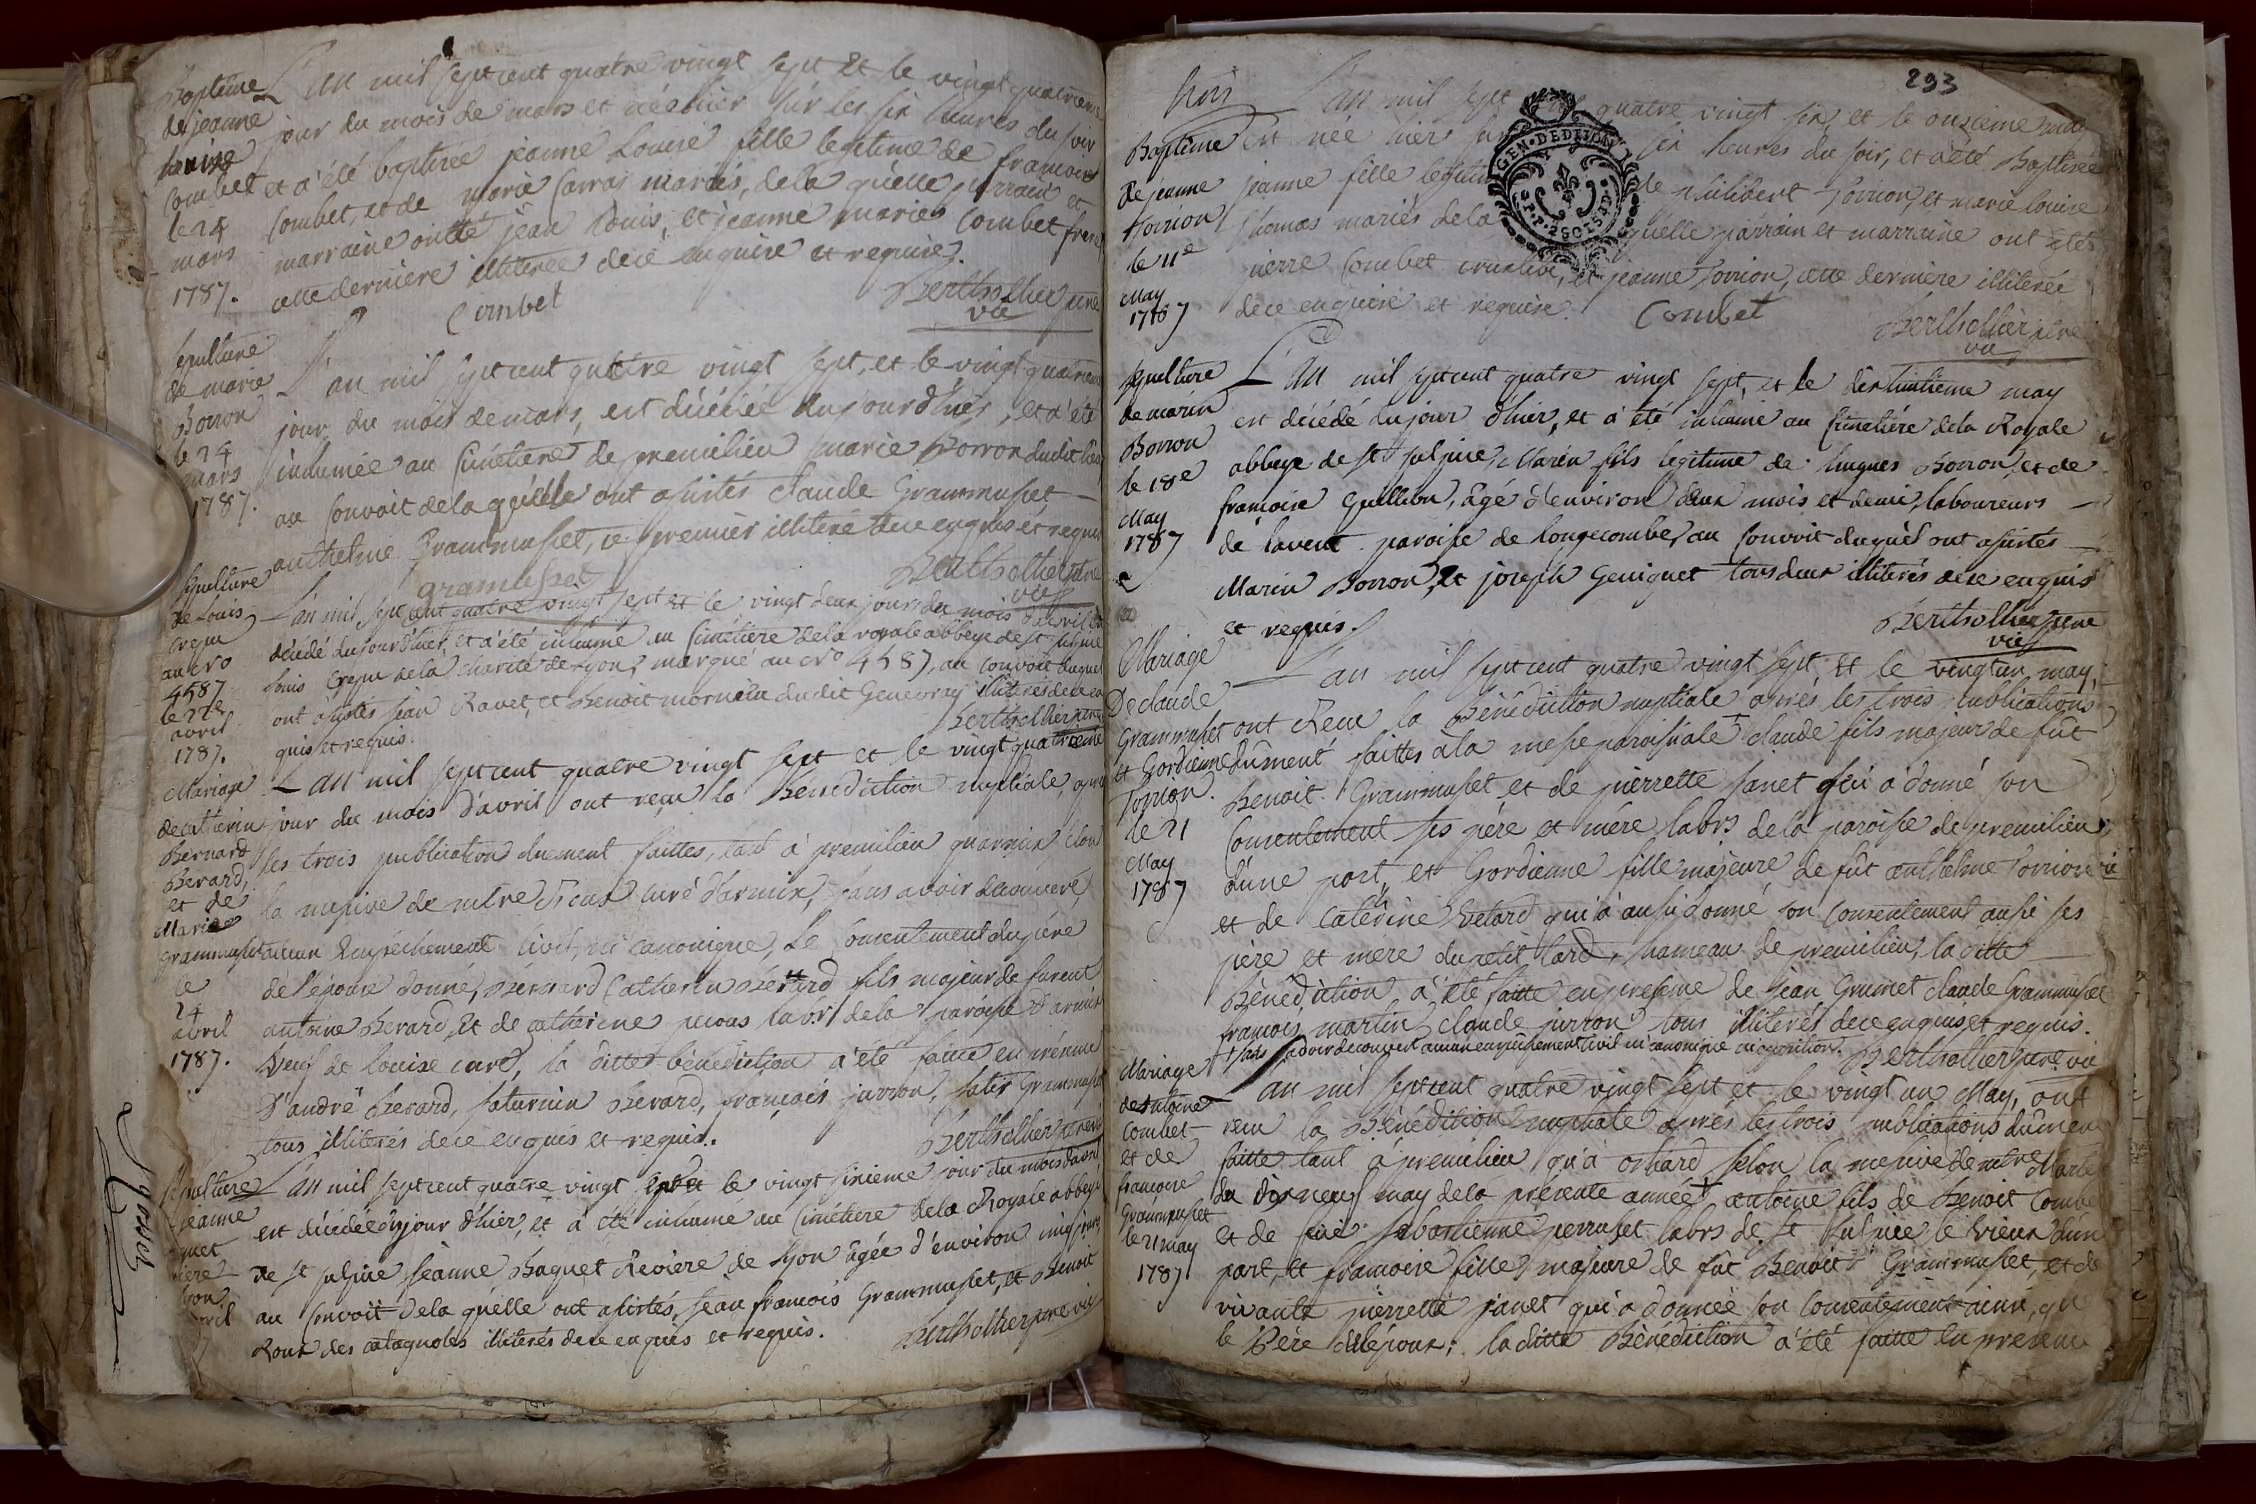 Baptême
de jeanne
Louise
Combet
le 24
mars
1787.
L'an mil sept cent quatre vingt sept et le vingt quatrieme
jour du mois de mars et née hier sur les six heures du soir
et a été baptisée jeanne Louise fille legitime de francois
Combet, et de marie Carraz mariés, de la quelle parrain et
marraine ont été jean Louis, et jeanne marie Combet frere
cette derniere illiterée de ce enquise et requise.
Combet
Berthollier prre
vic
sepulture
de marie
Borron
le 24
mars
1787.
L'an mil sept cent quatre vingt sept, et le vingt quatrieme
jour du mois de mars, est décédée du jour d'hier, et a été
inhumée au Cimétiere de premilieu marie Borron dudit lieu
au Convoit de la quelle ont assistés claude Grammusset
anthelme Grammusset, ce premier illiteré de ce enquis et requis
gramusset
Berthollier prre
vic
sepulture
de Louis
Crepu
au cro
4587
le 22e
avril
1787.
L'an mil sept cent quatre vingt sept et le vingt deux jour du mois d'avril est
décédé du jour d'hier, et a été inhumé au Cimétiere de la royale abbeye de st sulpice
Louis Crepu de la charité de Lyon, marqué au cro 4587, au convoit duquel
ont assistés jean Ravet, et Benoit mornieu dudit Genevray illiterés de ce en
quis et requis.
Berthollier prre
Mariage
de catherin
Bernard
Berard,
et de
Marie
grammusset
le
24
avril
1787.
L'an mil sept cent quatre vingt sept et le vingt quatrieme
jour du mois d'avril ont reçu la Bénédiction nuptiale, après
les trois publication duement faittes, tant à premilieu qu'armix, selon
la missive de mtre curé d'armix, sans avoir découvert
aucun Empêchement Civil, ni canonique, Le Consentement du pere
de l'épouse donné, Bernard Catherin Berard fils majeur de furent
antoine Berard, et de catherine labrs de la paroisse d'armix
veuf de louise curé, la ditte bénédiction a été faitte en présence
d'andré Berard, saturnin Berard, françois jurron, Grammusset
tous illiterés de ce enquis et requis.
Berthollier prre vic
sepulture
jeanne
quet
viere
Lyon
avril
L'an mil sept cent quatre vingt sept et le vingt sixieme jour du mois d'avril
est décédée du jour d'hier, et a été inhumé au Cimétiere de la Royale abbeye
de st sulpice jeanne Baquet Reviere de Lyon agée d'environ cinq jours,
au Convoit de la quelle ont assistés, jean francois Grammusset, et Benoit
Roux des catagnoles illiterés de ce enquis et requis.
Berthollier prre vic
293
trois
GEN. DE DIJON
Baptême
de jeanne
torrion
le 11e
May
1787
L'an mil sept quatre vingt sept et le onzieme may
est née hier sur six heures du soir, et a été Baptisée
jeanne fille legitime de philibert Torrion, et marie louise
thomas mariés de la quelle parrain et marraine ont étés
pierre Combet et jeanne Torrion, cette derniere illiterée
de ce enquise et requise.
Combet
Berthollier prre
vic
sepulture
de marin
Borron
le 18e
May
1787
L'an mil sept cent quatre vingt sept, et le dix huitieme may
est décédé du jour d'hier, et a été inhumé au Cimetiére de la Royale
abbeye de st sulpice, Marin fils legitime de hugues Borron, et de
francoise Guillion, âgé d'environ deux mois et demi, laboureurs
de lavent paroisse de longecombe, au Convoit duquel ont assistés
Marin Borron, et joseph Geniquet tous deux illiterés de ce enquis
et requis.
Berthollier prre
vic
Mariage
De claude
Grammusset
et Gordienne
Torrion.
le 21
May
1787
L'an mil sept cent quatre vingt sept et le vingt un may,
ont Recu la Bénédiction nuptiale aprés les trois publications
dûment faittes à la messe paroissiale + claude fils majeur de fût
Benoit Grammusset et de pierrette janet qui a donné son
Consentement ses pére et mére labrs de la paroisse de premilieu
d'une part, et Gordienne fille majeure de fût anthelme Torrion
et de Caterine Vetard qui a aussi donné son Consentement aussi ses
pére et mere du petit lard, hameau de premilieu, la ditte
Bénédiction a été faitte en presence de jean Grumet claude Grammusset
francois martin, claude jurron tous illiterés de ce enquis et requis.
+ sans avoir découvert aucun empéchement Civil ni canonique ni opposition.
Berthollier prre vic
Mariage
de antoine
Combet
et de
francoise
Grammusset
le 21 may
1787
L'an mil sept cent quatre vingt sept et le vingt un May, ont
recu la Bénédiction nuptiale aprés les trois publications dûment
faitte tant à premilieu qu'à ossard selon la missive de mtre
du dix neuf may de la présente année, antoine fils de Benoit Combet
et de feue sebastienne perrusset labrs de st sulpice le vieux d'une
part, et francoise fille majeure de fût Benoit Grammusset, et de
vivante pierrette janet qui a donnée son Consentement ainsi, que
le Pére de l'époux; la ditte Bénédiction a été faitte en presence